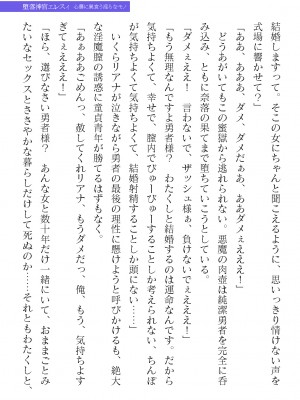 堕落神官エレスィ 心臓に巣食う淫らなモノ
結婚しますって。そこの女にちゃんと聞こえるように、思いっきり情けない声を
式場に響かせて？」
「ああ、ああっ、ダメ、ダメだぁぁ、ああああぁぁぁ！」
どうあがいてもこの蜜獄から逃れられない。悪魔の肉壺は純潔勇者を完全に呑
み込み、ともに奈落の果てまで堕ちていこうとしている。
「ダメぇぇぇ！　言わないで、ザッシュ様ぁ、負けないでぇぇええ！」
「もう無理なんですよ勇者様？　わたくしと結婚するのは運命なんです。だから
気持ちよくて、幸せで、膣内でぴゅーぴゅーすることしか考えられない、ちんぽ
が気持ちよくて気持ちよくて、結婚射精することしか頭にない……」
いくらリアナが泣きながら勇者の最後の理性に懸けようと呼びかけるも、絶大
な淫魔膣の誘惑に童貞青年が勝てるはずもなく。
「あぁああごめんっ、赦してくれリアナ、もうダメだっ、俺、もう、気持ちよす
ぎてぇえええ！」
「ほら、選びなさい勇者様？　あんな女と数十年だけ一緒にいて、おままごとみ
たいなセックスとささやかな暮らしだけして死ぬのか…それともわたくしと、